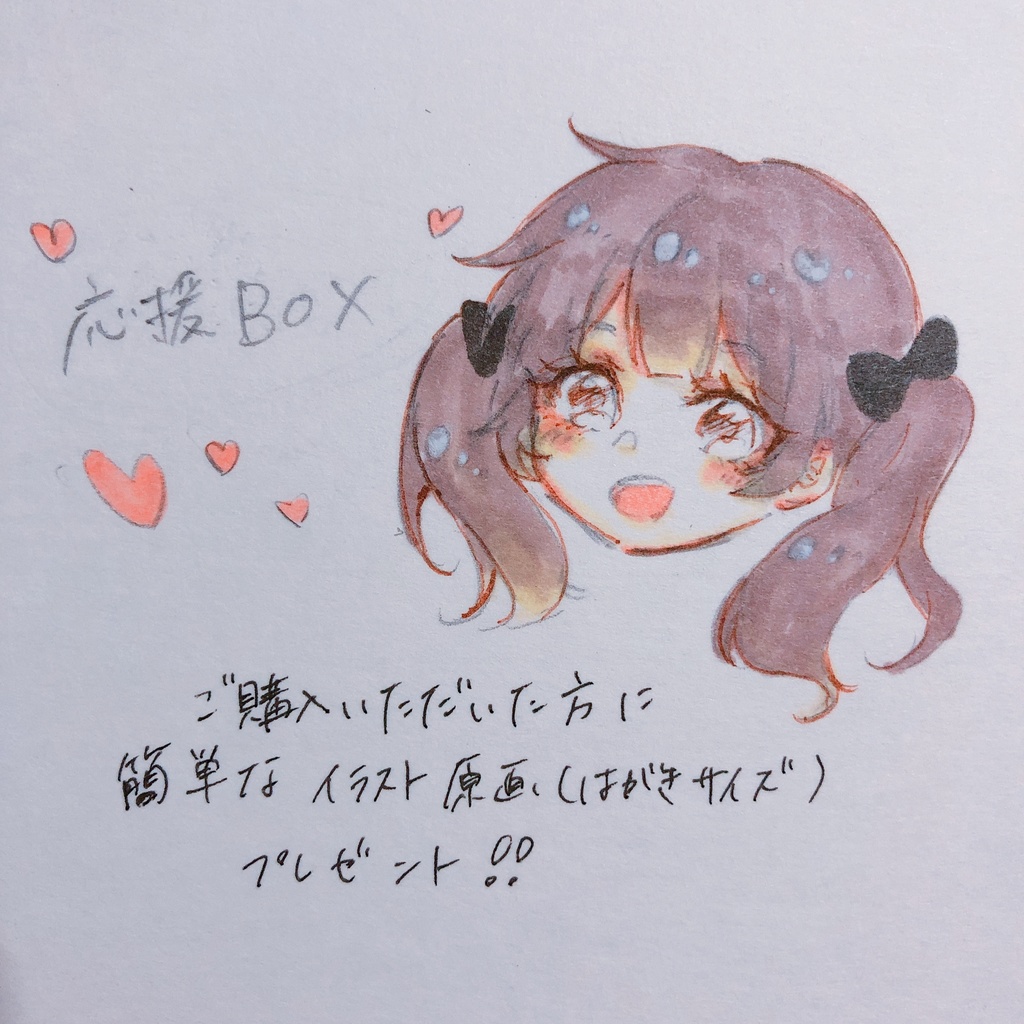 応援BOX
ご購入いただいた方に
簡単なイラスト原画(はがきサイズ)
プレゼント!!